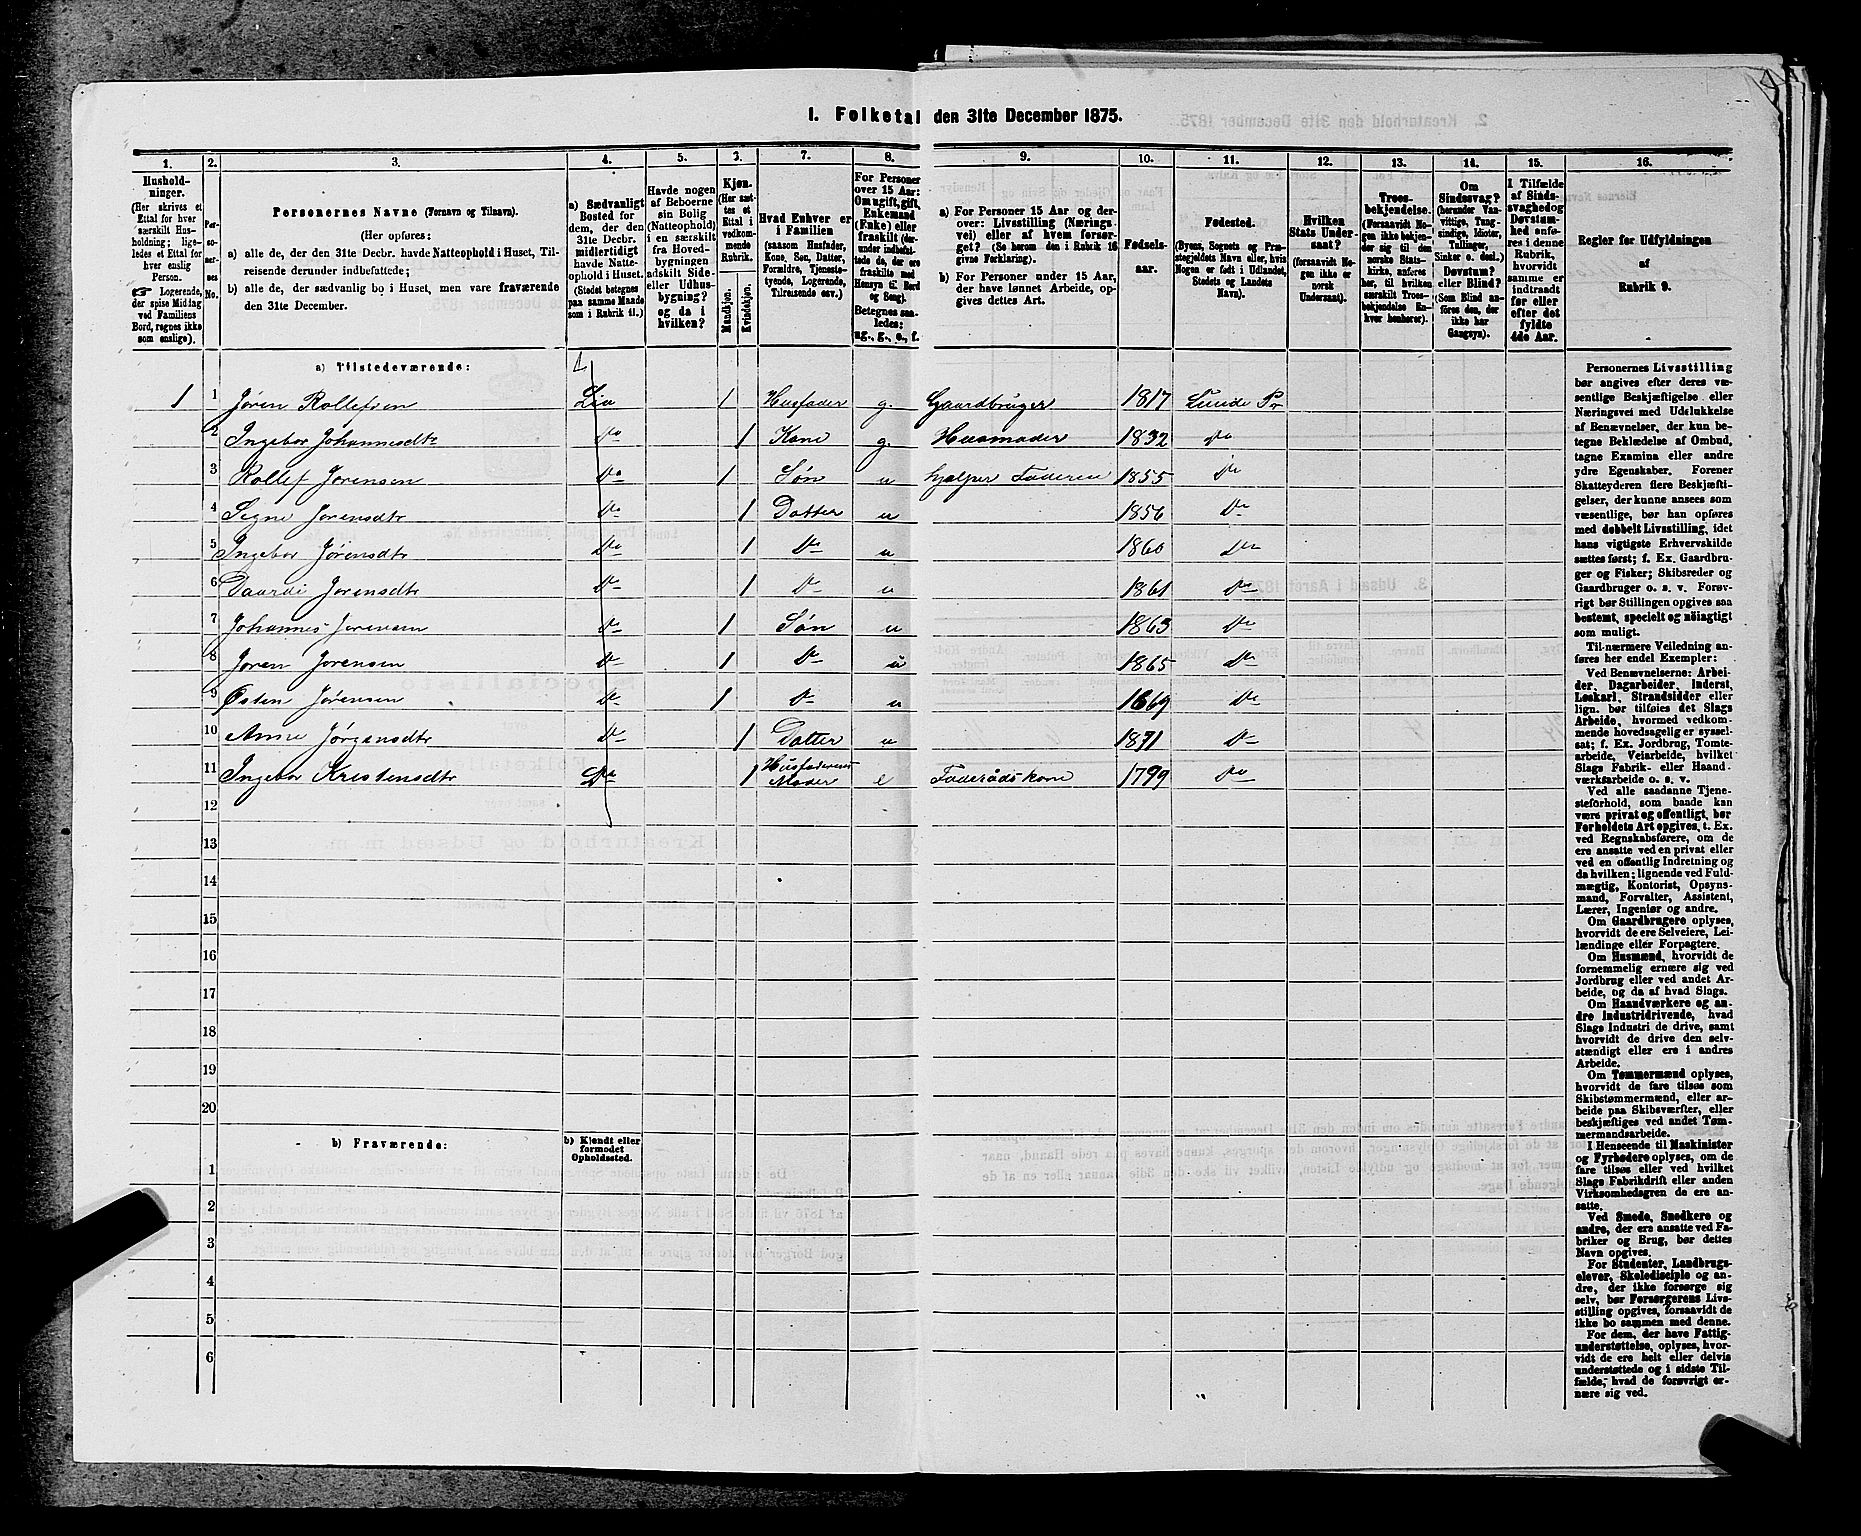 1. Folketal den 31te December 1875.
1. 2. 3. 4. 5. 6. 7. 8. 9. 10. 11. 12. 13. 14. 15. 16.
Hushold-
ninger.
(Her skrives et
Ettal for hver
særskilt Hus-
holdning; lige-
ledes et Ettal
for hver enslig
Person.
Logerende,
der spise Middag
ved Familiens
Bord, regnes ikke
som enslige).
Per-
so-
ner-
nes
No.
Personernes Navne (Fornavn og Tilnavn).
(Her opføres:
a) alle de, der den 31te Decbr. havde Natteophold i Huset, Til-
reisende derunder indbefattede;
b) alle de, der sædvanlig bo i Huset, men vare fraværende
den 31te December.
a) Sædvanligt
Bosted for
dem, der den
31te Decbr.
midlertidigt
havde Natte-
ophold i Huset.
(Stedet betegnes
paa samme Maade
som i Rubrik 11.)
Havde nogen
af Beboerne
sin Bolig
(Natteophold)
i en særskilt
fra Hoved-
bygningen
adskilt Side-
eller Udhus-
bygning?
og da i
hvilken?
Kjøn.
(Her sæt-
tes et
Ettal i
vedkom-
mende
Rubrik.
Mandkjøn.
Kvindekjøn.
Hvad Enhver er
i Familien
(saasom Husfader,
Kone, Søn, Datter,
Forældre, Tjeneste-
tyende, Logerende,
Tilreisende osv.)
For Personer
over 15 Aar:
Om ugift, gift,
Enkemand
(Enke) eller
fraskilt (der-
under indbefat-
tede de, der ere
fraskilte med
Hensyn til Bord
og Seng).
Betegnes saa-
ledes:
ug., g., e., f.
a) For Personer 15 Aar og der-
over: Livsstilling (Nærings-
vei) eller af hvem forsør-
get? (Se herom den i Rubrik 16
givne Forklaring).
b) For Personer under 15 Aar,
der have lønnet Arbeide, op-
gives dettes Art.
Fødsels-
aar.
Fødested.
(Byens, Sognets og Præ-
stegjeldets Navn eller, hvis
Nogen er født i Udlandet,
Stedets og Landets
Navn).
Hvilken
Stats Under-
saat?
(forsaavidt No-
gen ikke er
norsk
Undersaat).
Troes-
bekjendelse.
(Forsaavidt No-
gen ikke bekjen-
der sig til den
norske Stats-
kirke, anføres
her, til hvilken
særskilt Troes-
bekjendelse En-
hver henhører).
Om
Sindssvag?
(herunder Van-
vittige, Tung-
sindige, Idioter,
Tullinger,
Sinker o. desl.)
Døvstum?
eller Blind?
(Som Blind an-
føres den, der
ikke har
Gangsyn).
I Tilfælde
af Sinds-
svaghed og
Døvstum-
hed anfø-
res i denne
Rubrik,
hvorvidt
samme er
indtraadt
før eller
efter det
fyldte
4de Aar.
Regler for Udfyldningen
af
Rubrik 9.
a) Tilstedeværende:
1 1 Jøren Rollefsen Lia 1 Husfader g. Gaardbruger 1817 Lunde Pr
2 Ingebor Johannesdtr Do 1 Kone g Husmoder 1832 Do
3 Rollef Jorensen Do 1 Søn u hjælper Faderen 1855 Do
4 Signe Jorensdtr Do 1 Datter u 1856 Do
5 Ingebor Jørensdtr Do 1 Do u 1860 Do
6 Jorensdtr Do 1 Do u 1861 Do
7 Johannes Jorensen Do 1 Søn u 1863 Do
8 Joren Jorensen Do 1 Do u 1865 Do
9 Østen Jørensen Do 1 Do u 1869 Do
10 Anne Jørgensdtr Do 1 Datter u 1871 Do
11 Ingebor Kristensdtr Do 1 Husfaderens Moder e Foderådskone 1799 Do
12
13
14
15
16
17
18
19
20
b) Fraværende:
b) Kjendt eller
formodet
Opholdssted.
1
2
3
4
5
6
Personernes Livsstilling
bør angives efter deres væ-
sentlige Beskjæftigelse eller
Næringsvei med Udelukkelse
af Benævnelser, der kun be-
tegne Beklædelse af Ombud,
tagne Examina eller andre
ydre Egenskaber. Forener
Skatteyderen flere Beskjæfti-
gelser, der kunne ansees som
væsentlige, bør han opføres
med dobbelt Livsstilling, idet
hans vigtigste Erhvervskilde
sættes først; f. Ex. Gaardbru-
ger og Fisker; Skibsreder og
Gaardbruger o. s. v. Forøv-
rigt bør Stillingen opgives saa
bestemt, specielt og nøiagtigt
som muligt.
Til nærmere Veiledning an-
føres her endel Exempler:
Ved Benævnelserne: Arbei-
der, Dagarbeider, Inderst,
Løskarl, Strandsidder eller
lign. bør tilføies det Slags
Arbeide, hvormed vedkom-
mende hovedsagelig er syssel-
sat; f. Ex. Jordbrug, Tomte-
arbeide, Veiarbeide, hvilket
Slags Fabrik- eller Haand-
værksarbeide o. s. v.
Ved alle saadanne Tjene-
steforhold, som baade kan
være privat og offentligt, bør
Forholdets Art opgives, t. Ex.
ved Regnskabsførere, om de
ere ansatte ved en privat eller
ved en offentlig Indretning og
da hvilken; lignende ved Fuld-
mægtig, Kontorist, Opsyns-
mand, Forvalter, Assistent,
Lærer, Ingeniør og andre.
Om Gaardbrugere oplyses,
hvorvidt de ere Selveiere, Lei-
lændinge eller Forpagtere.
Om Husmænd, hvorvidt de
fornemmelig ernære sig ved
Jordbrug eller ved andet Ar-
beide, og da af hvad Slags.
Om Haandværkere og an-
dre Industridrivende, hvad
Slags Industri de drive, samt
hvorvidt de drive den selv-
stændigt eller ere i andres
Arbeide.
Om Tømmermænd oplyses,
hvorvidt de fare tilsøs som
Skibstømmermænd, eller ar-
beide paa Skibsværfter, eller
beskjæftiges ved andet Tøm-
mermandsarbeide.
I Henseende til Maskinister
og Fyrbødere oplyses, om de
fare tilsøs eller ved hvilket
Slags Fabrikdrift eller anden
Virksomhedsgren de ere an-
satte.
Ved Smede, Snedkere og
andre, der ere ansatte ved Fa-
briker og Brug, bør dettes
Navn opgives.
For Studenter, Landbrugs-
elever, Skoledisciple og an-
dre, der ikke forsørge sig
selv, bør Forsørgerens Livs-
stilling opgives, forsaavidt de
ikke bo sammen med denne.
For dem, der have Fattig-
understøttelse, oplyses, hvor-
vidt de ere helt eller delvis
understøttede og i sidste Til-
fælde, hvad de forøvrigt er-
nære sig ved.